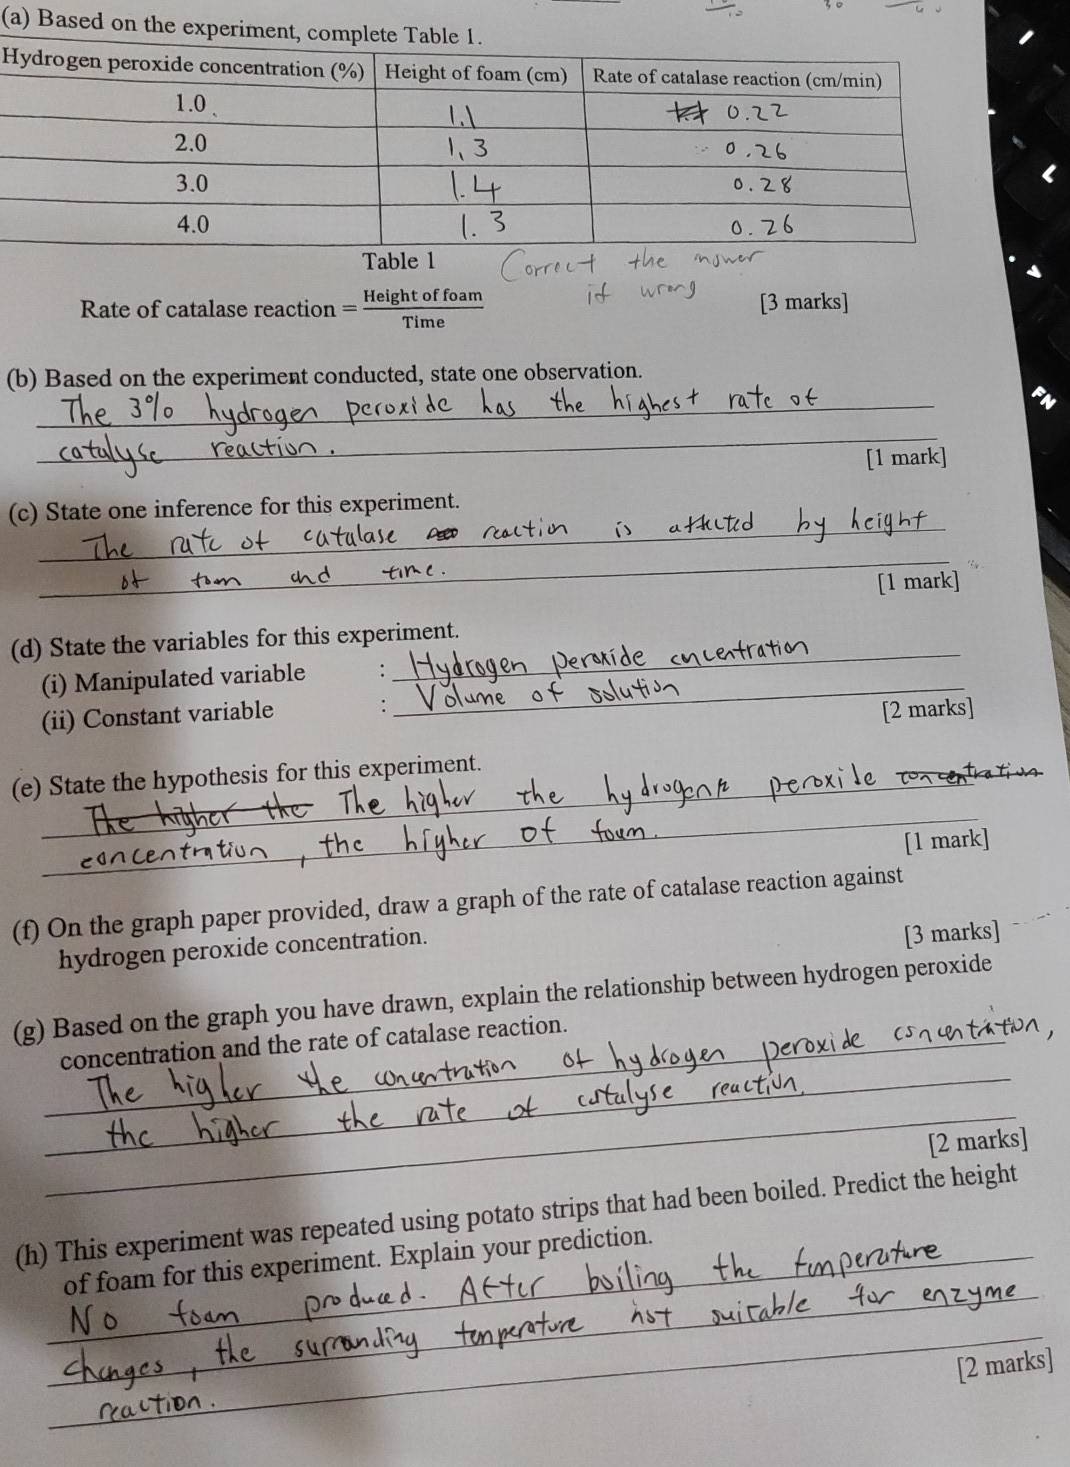 (a) Based on the experiment, complete Table 1.
Hydrogen peroxide concentration (%) Height of foam (cm) Rate of catalase reaction (cm/min)
1.0 1.1 0.22
2.0 1.3 0.26
3.0 1.4 0.28
4.0 1.3 0.26
Table 1
Correct the answer
if wrong
Rate of catalase reaction = Height of foam / Time
[3 marks]
(b) Based on the experiment conducted, state one observation.
The 3% hydrogen peroxide has the highest rate of
catalyse reaction.
[1 mark]
(c) State one inference for this experiment.
The rate of catalase reaction is affected by height
of foam and time.
[1 mark]
(d) State the variables for this experiment.
(i) Manipulated variable : Hydrogen peroxide concentration
(ii) Constant variable : Volume of solution
[2 marks]
(e) State the hypothesis for this experiment.
The higher the The higher the hydrogen peroxide concentration
concentration, the higher of foam.
[1 mark]
(f) On the graph paper provided, draw a graph of the rate of catalase reaction against
hydrogen peroxide concentration.
[3 marks]
(g) Based on the graph you have drawn, explain the relationship between hydrogen peroxide
concentration and the rate of catalase reaction.
The higher the concentration of hydrogen peroxide concentration,
the higher the rate of catalyse reaction.
[2 marks]
(h) This experiment was repeated using potato strips that had been boiled. Predict the height
of foam for this experiment. Explain your prediction.
No foam produced. After boiling the temperature
changes, the surranding temperature not suitable for enzyme
reaction.
[2 marks]